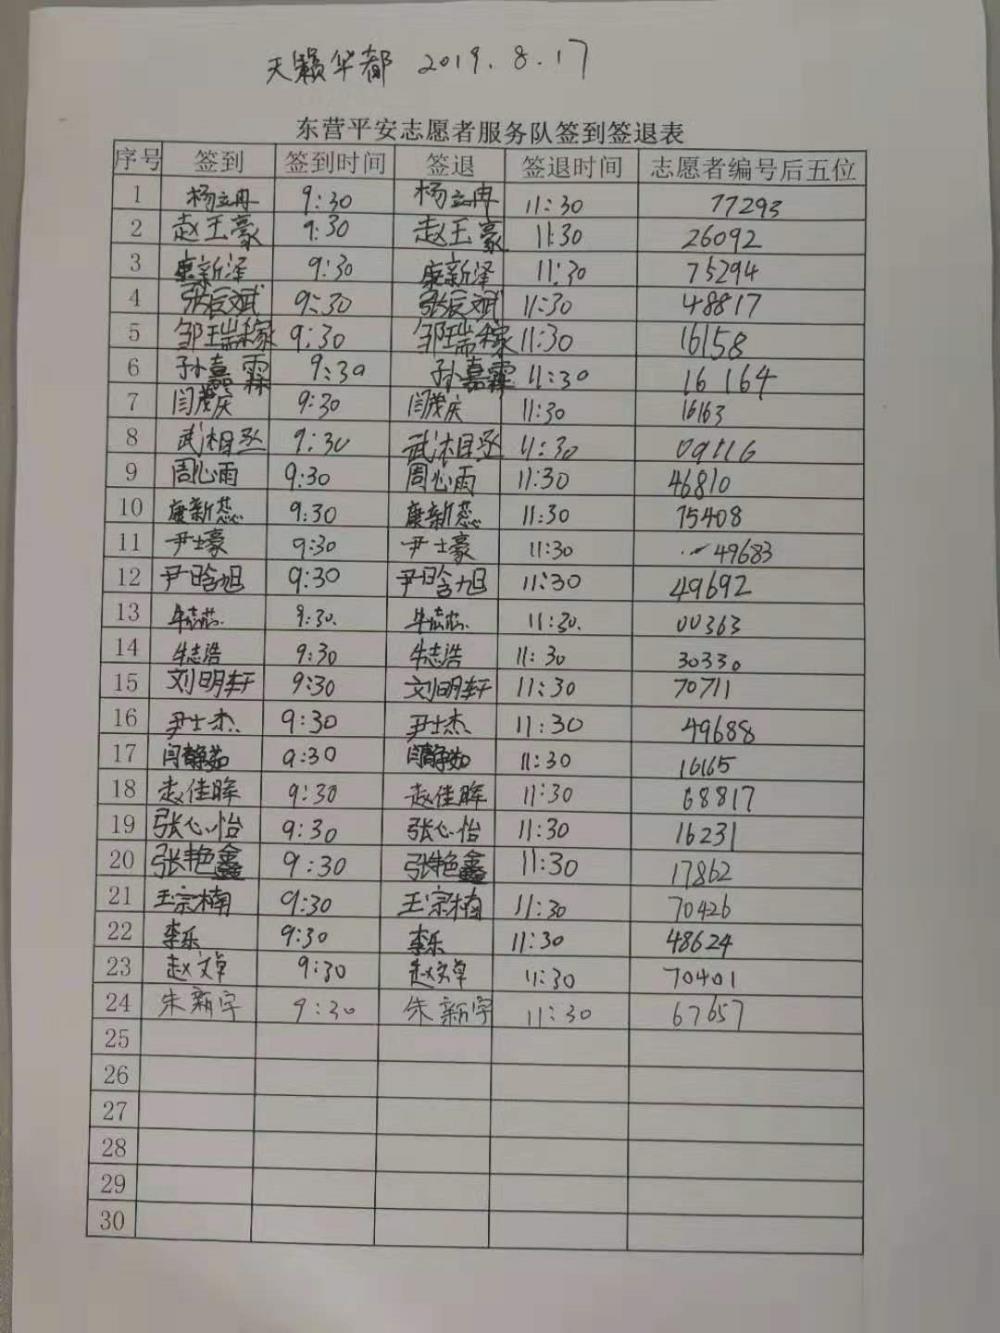 天籁华都 2019.8.17
东营平安志愿者服务队签到签退表
序号 签到 签到时间 签退 签退时间 志愿者编号后五位
1 杨立冉 9:30 杨立冉 11:30 77293
2 赵玉豪 9:30 赵玉豪 11:30 26092
3 康新泽 9:30 康新泽 11:30 75294
4 张辰斌 9:30 张辰斌 11:30 48817
5 邹瑞稼 9:30 邹瑞稼 11:30 16158
6 孙嘉霖 9:30 孙嘉霖 11:30 16164
7 闫茂庆 9:30 闫茂庆 11:30 16163
8 武相丞 9:30 武相丞 11:30
9 周心雨 9:30 周心雨 11:30 46810
10 康新蕊 9:30 康新蕊 11:30 75408
11 尹士豪 9:30 尹士豪 11:30 49683
12 尹晗旭 9:30 尹晗旭 11:30 49692
13 9:30. 11:30. 00363
14 牛志浩 9:30 牛志浩 11:30 30330
15 刘明轩 9:30 刘明轩 11:30 70711
16 尹士杰 9:30 尹士杰 11:30 49688
17 闫静茹 9:30 闫静茹 11:30 16165
18 赵佳晖 9:30 赵佳晖 11:30 68817
19 张心怡 9:30 张心怡 11:30 16231
20 张艳鑫 9:30 张艳鑫 11:30 17862
21 王宗楠 9:30 王宗楠 11:30 70426
22 李乐 9:30 李乐 11:30 48624
23 赵文卓 9:30 赵文卓 11:30 70401
24 朱新宇 9:30 朱新宇 11:30 67657
25
26
27
28
29
30